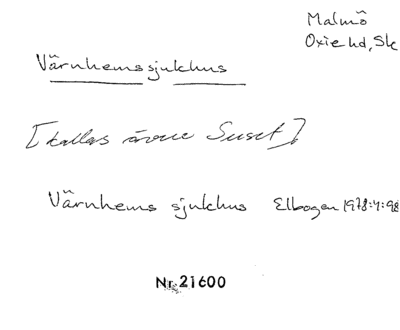 Malmö
Oxie hd, Sk
Värnhems sjukhus
[kallas även Suset].
Värnhems sjukhus Elbogen 1978:4:98
Nr 21600